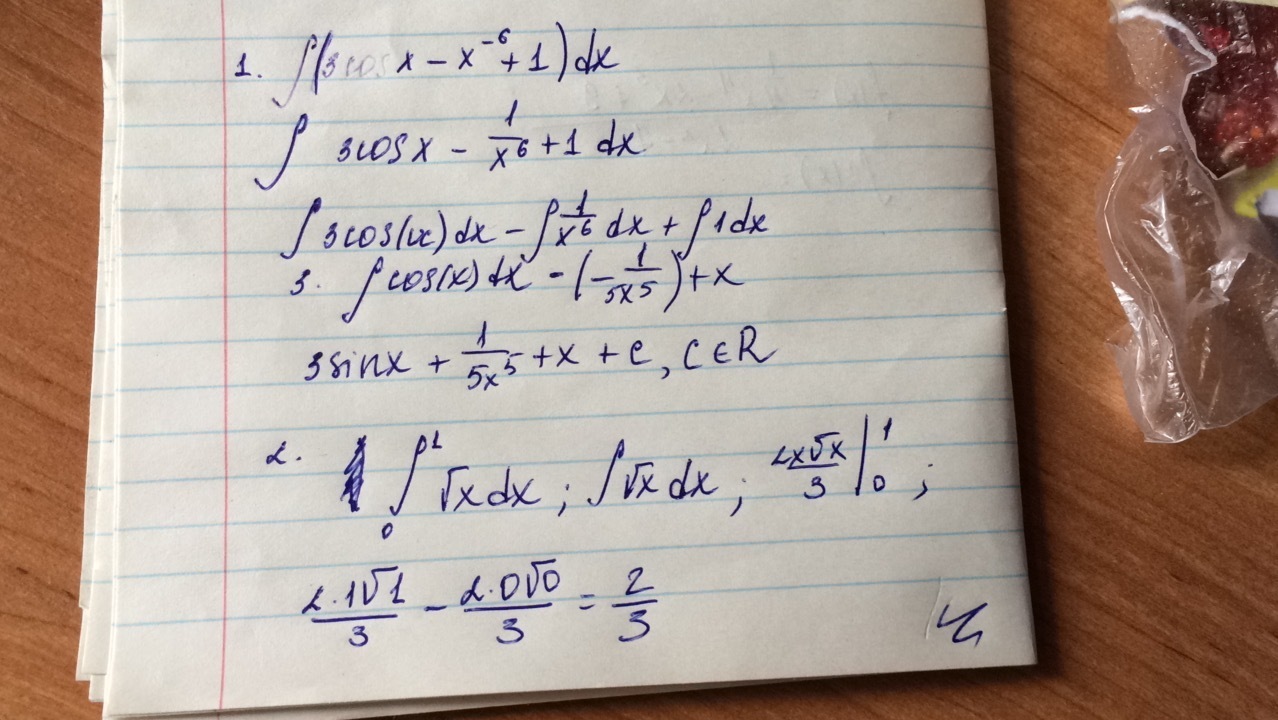 1. ∫(3cos x − x⁻⁶ + 1) dx
∫ 3cos x − 1/x⁶ + 1 dx
∫ 3cos(x) dx − ∫ 1/x⁶ dx + ∫ 1 dx
3. ∫ cos(x) dx − (− 1/5x⁵) + x
3 sinx + 1/5x⁵ + x + C, C ∈ R
2. ∫₀¹ √x dx ; ∫ √x dx ; 2x√x/3 |₀¹ ;
2·1√1/3 − 2·0√0/3 = 2/3